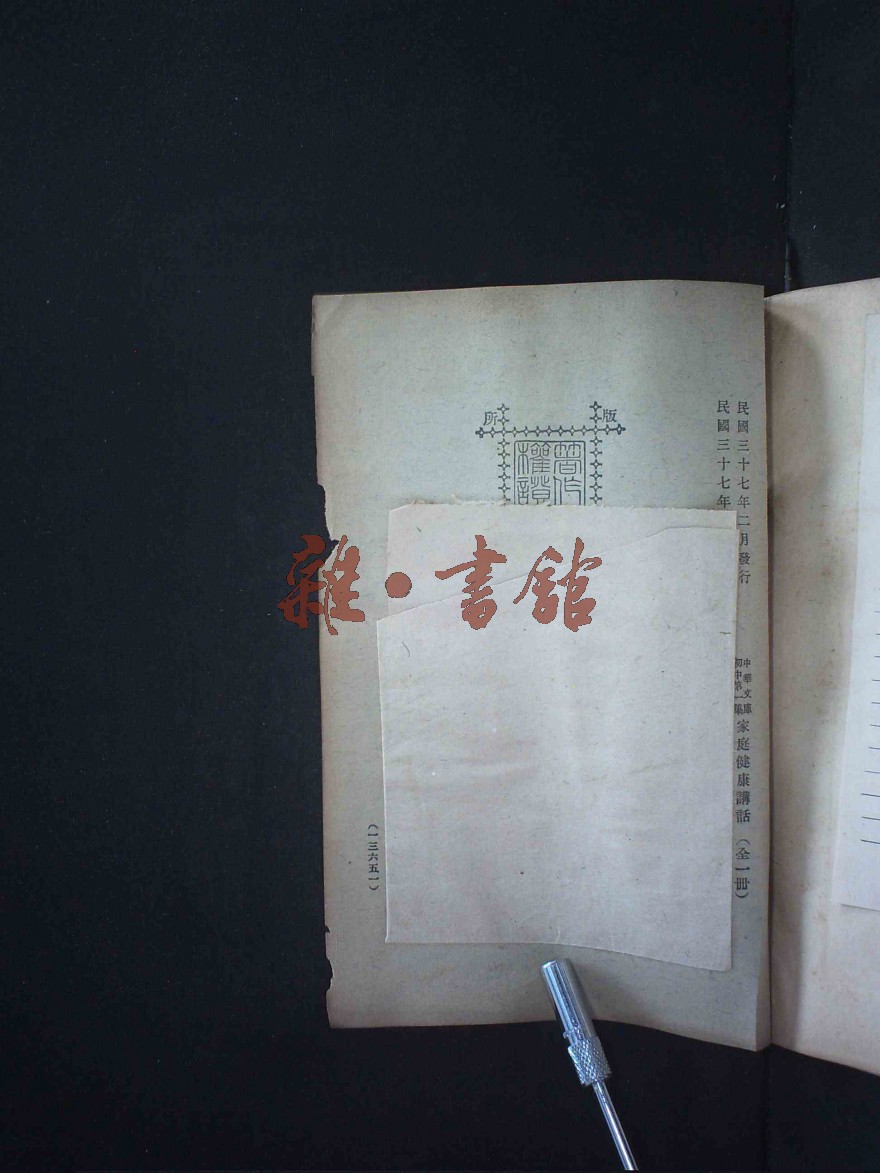 民國三十七年二月發行
民國三十七年
中華文庫
初中第一集
家庭健康講話（全一冊）
版
所
著作
權證
（一三六五一）
雜•書館